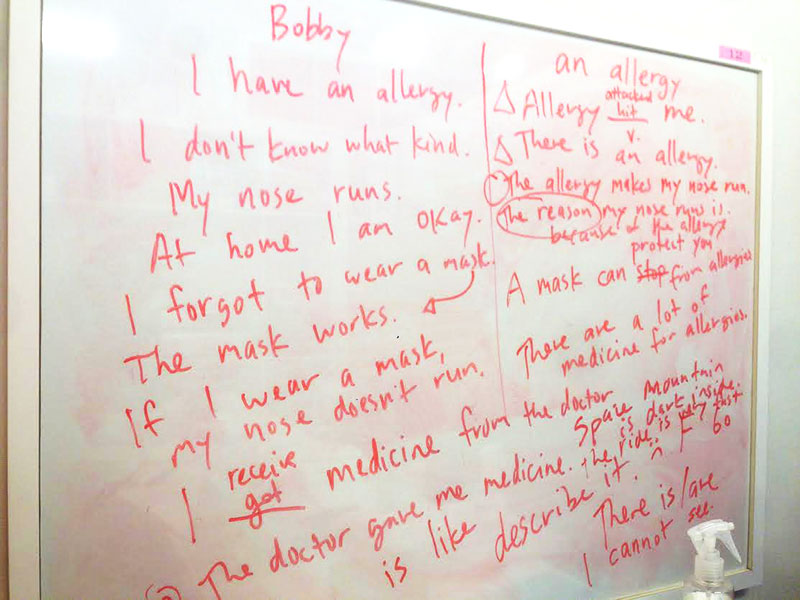 Bobby
I have an allergy.
I don't know what kind.
My nose runs.
At home I am okay.
I forgot to wear a mask.
The mask works.
If I wear a mask,
my nose doesn't run.
receive
I got medicine from the doctor
The doctor gave me medicine.
is like describe it.
12
an allergy
attacked
△ Allergy hit me.
v.
△ There is an allergy.
The allergy makes my nose run.
The reason my nose runs is.
because of the allergy
protect you
A mask can stop from allergies
There are a lot of
medicine for allergies.
Space Mountain
is dark inside.
The ride is very fast
n F 60
There is/are
I cannot see.